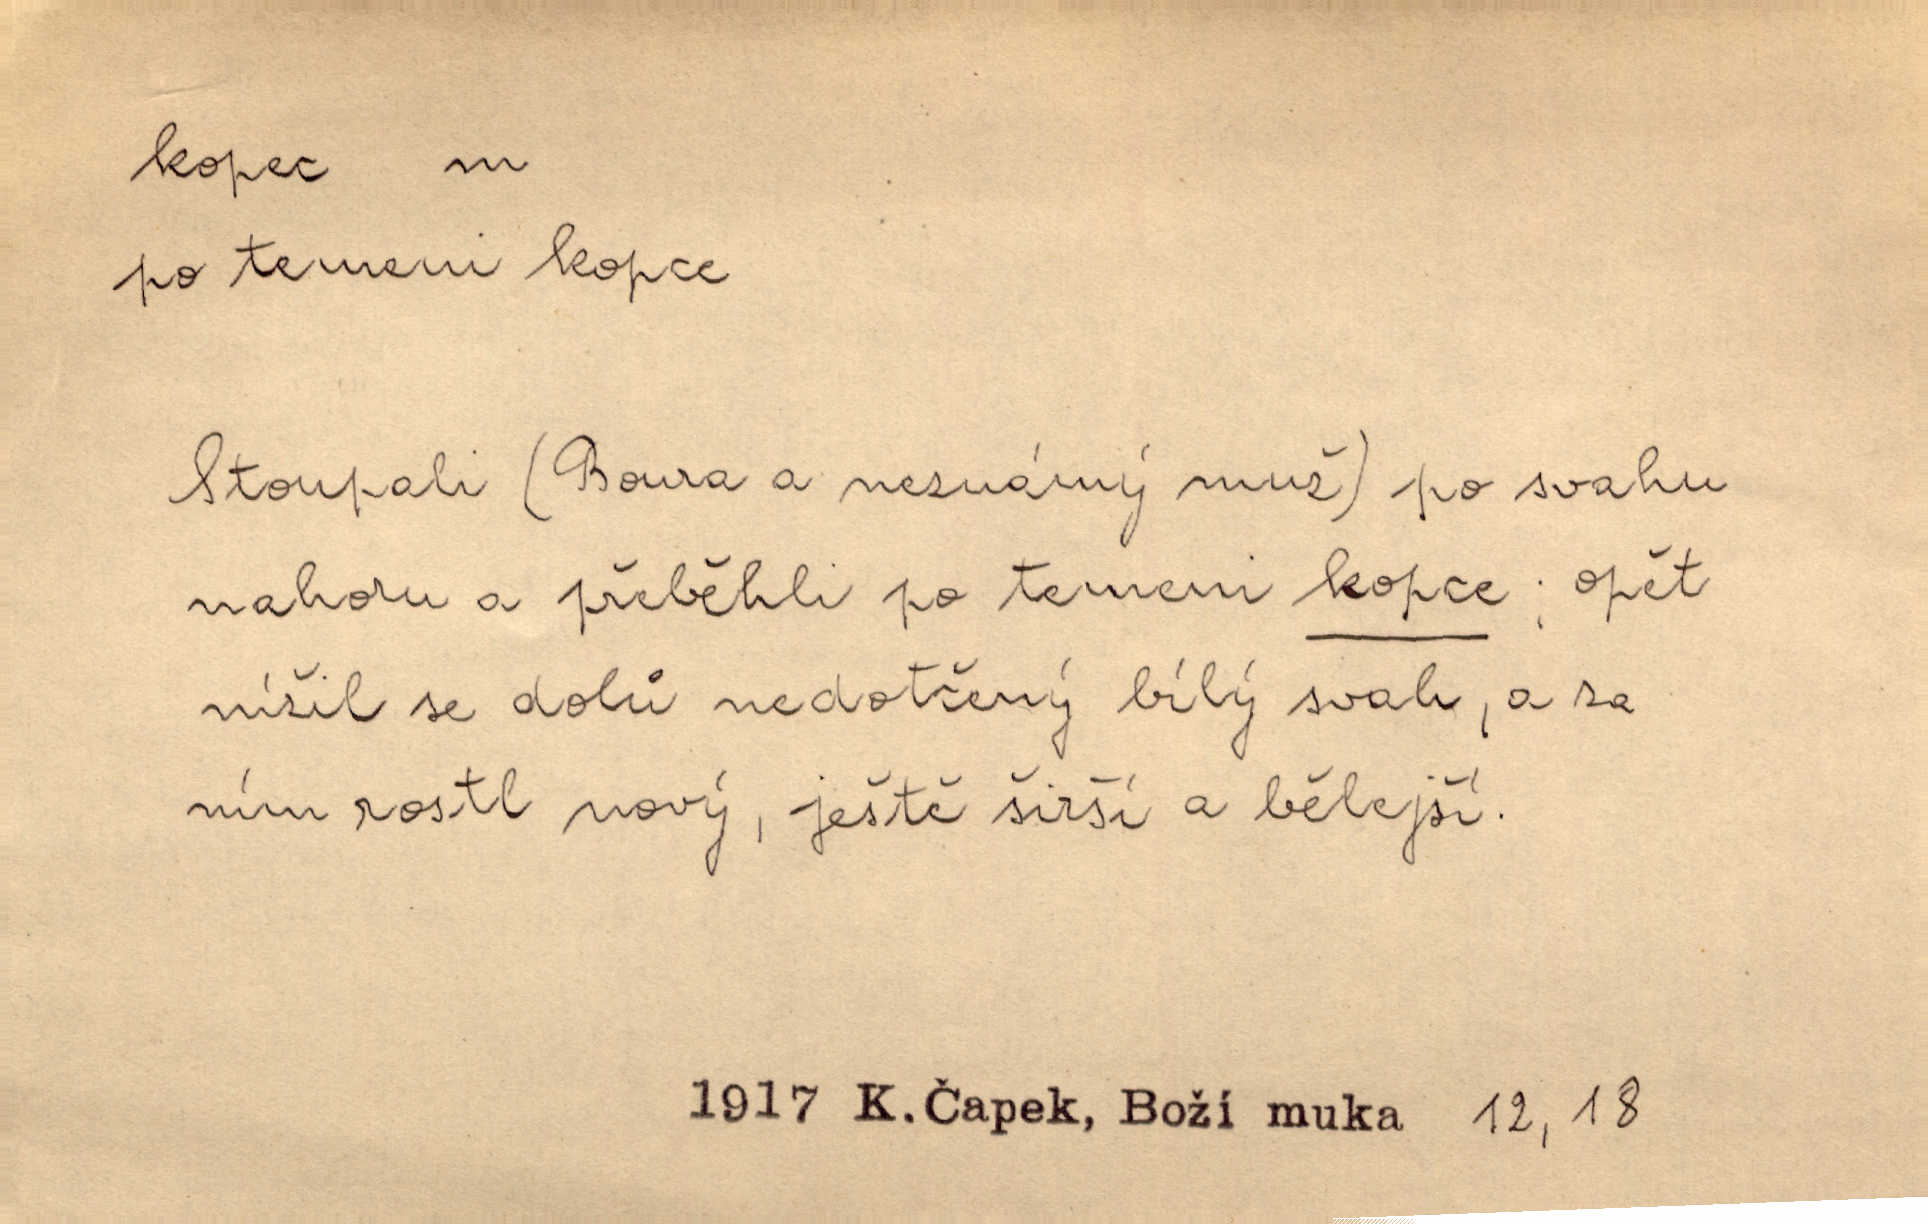 kopec m
po temeni kopce
Stoupali (Boura a neznámý muž) po svahu
nahoru a přeběhli po temeni kopce; opět
nížil se dolů nedotčený bílý svah, a za
ním rostl nový, ještě širší a bělejší.
1917 K. Čapek, Boží muka 12, 18